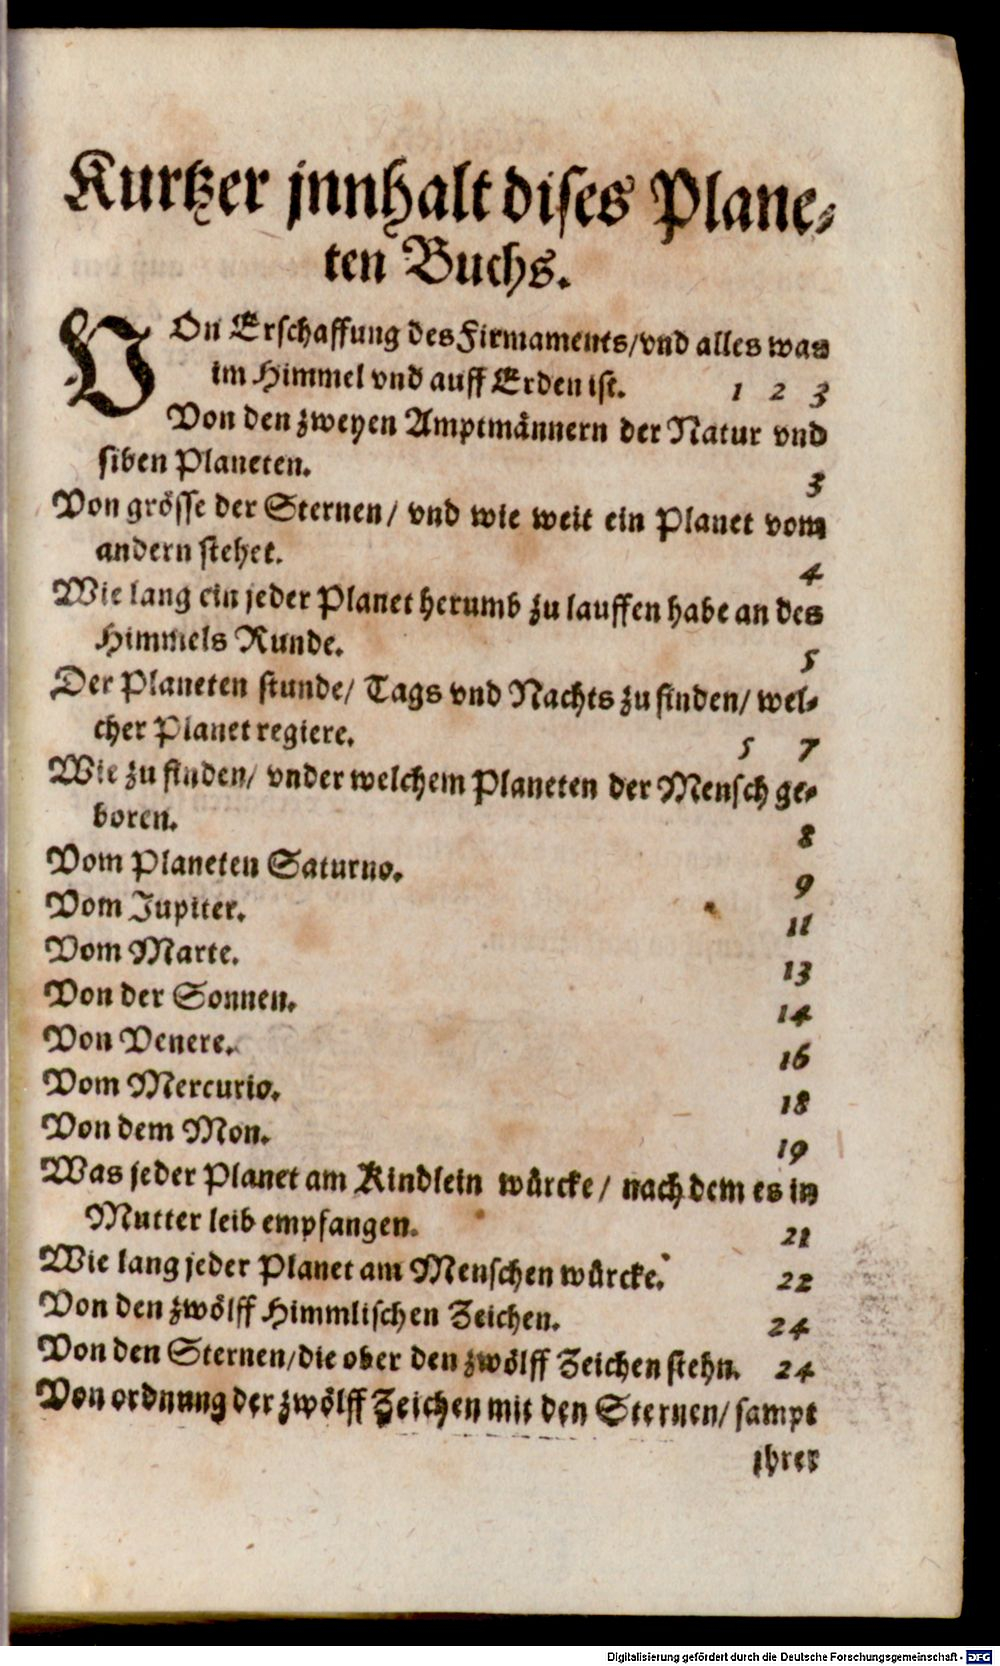 Kurtzer jnnhalt dises Plane-
ten Buchs.
VOn Erschaffung des Firmaments/vnd alles was
im Himmel vnd auff Erden ist. 1 2 3
Von den zweyen Amptmännern der Natur vnd
siben Planeten. 3
Von grösse der Sternen/ vnd wie weit ein Planet vom
andern stehet. 4
Wie lang ein jeder Planet herumb zu lauffen habe an des
Himmels Runde. 5
Der Planeten stunde/ Tags vnd Nachts zu finden/ wel-
cher Planet regiere. 5 7
Wie zu finden/ vnder welchem Planeten der Mensch ge-
boren. 8
Vom Planeten Saturno. 9
Vom Jupiter. 11
Vom Marte. 13
Von der Sonnen. 14
Von Venere. 16
Vom Mercurio. 18
Von dem Mon. 19
Was jeder Planet am Kindlein würcke/ nach dem es in
Mutter leib empfangen. 21
Wie lang jeder Planet am Menschen würcke. 22
Von den zwölff Himmlischen Zeichen. 24
Von den Sternen/die ober den zwölff Zeichen stehn. 24
Von ordnung der zwölff Zeichen mit den Sternen/ sampt
ihrer
Digitalisierung gefördert durch die Deutsche Forschungsgemeinschaft - DFG